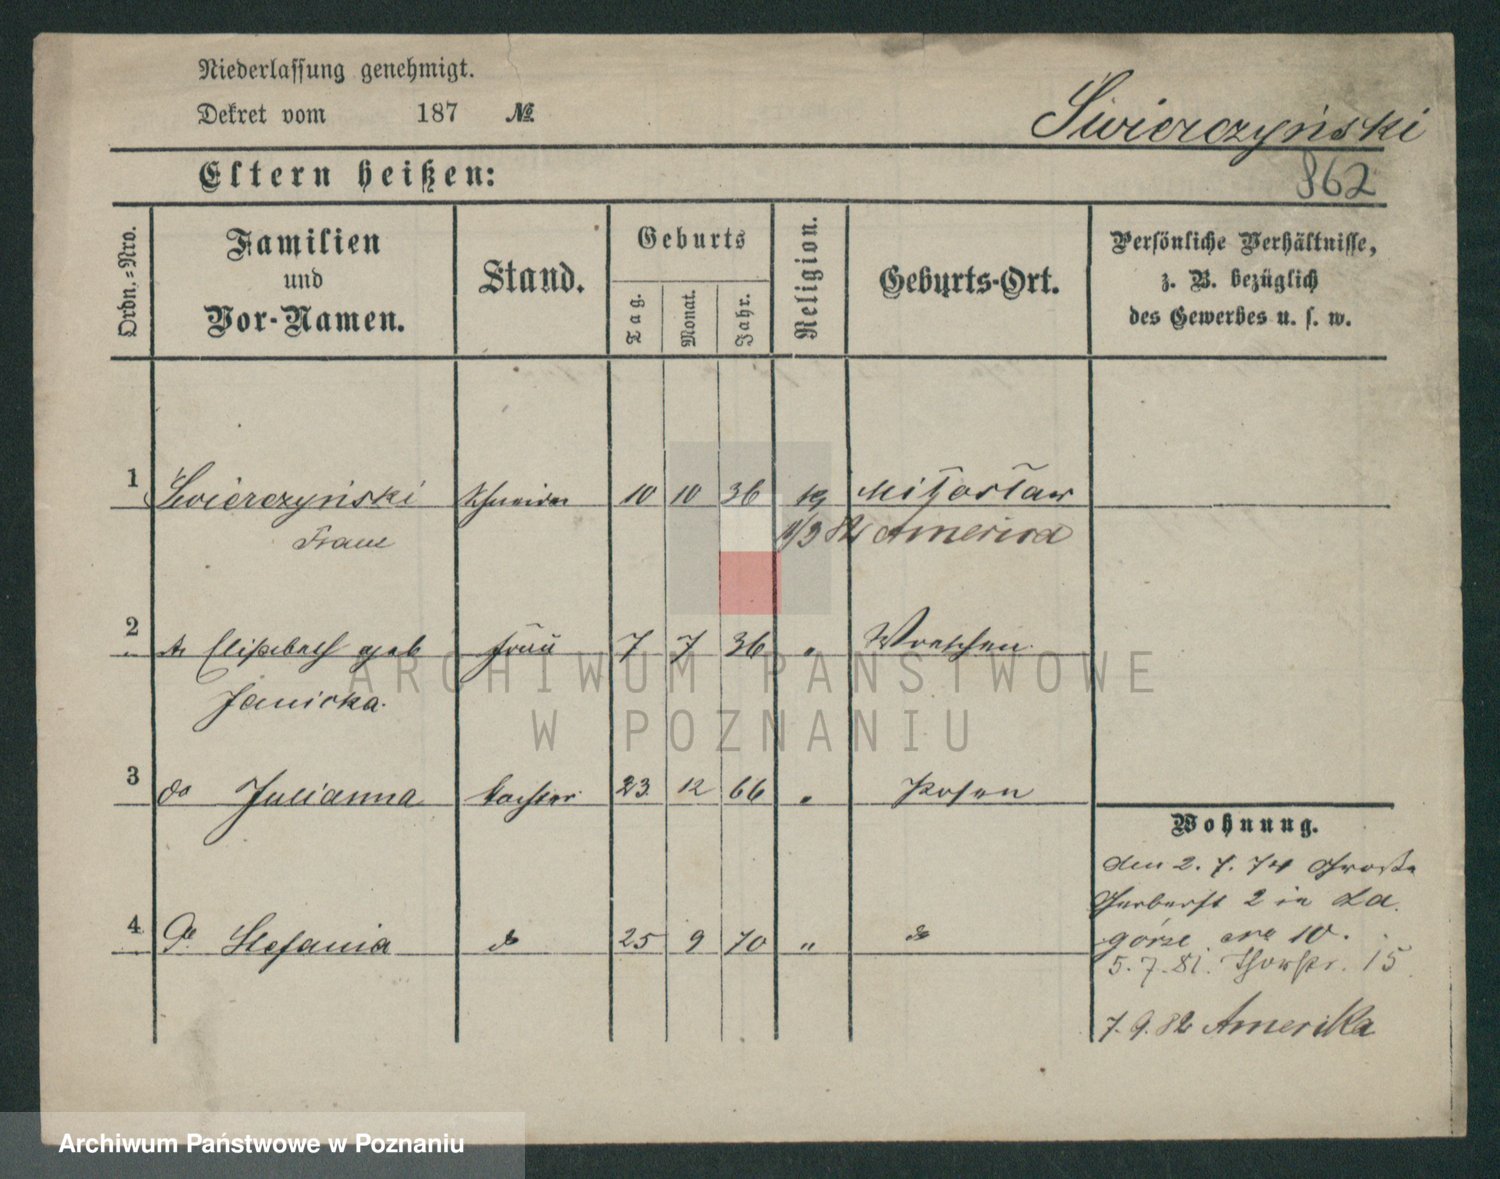 Niederlassung genehmigt.
Dekret vom 187 №
Swierczyński
862
Eltern heißen:
Ordn.-Nro.
Familien
und
Vor-Namen.
Stand.
Geburts
Tag.
Monat.
Jahr.
Religion.
Geburts-Ort.
Persönliche Verhältnisse,
z. B. bezüglich
des Gewerbes u. s. w.
1 Swierczyński Schneider 10 10 36 Miłosław
Franz 82 America
2 Elisabeth geb Frau 7 7 36 " Wreschen
Janicka.
3 do Julianna Tochter 23 12 66 " Posen
Wohnung.
den 2. 7. 74 Große
Gerberst 2 in Za
górze 10.
4 do Stefania do 25 9 70 " do
5.7.81. Thorstr. 15
7.9.82 Amerika
ARCHIWUM PAŃSTWOWE
W POZNANIU
Archiwum Państwowe w Poznaniu